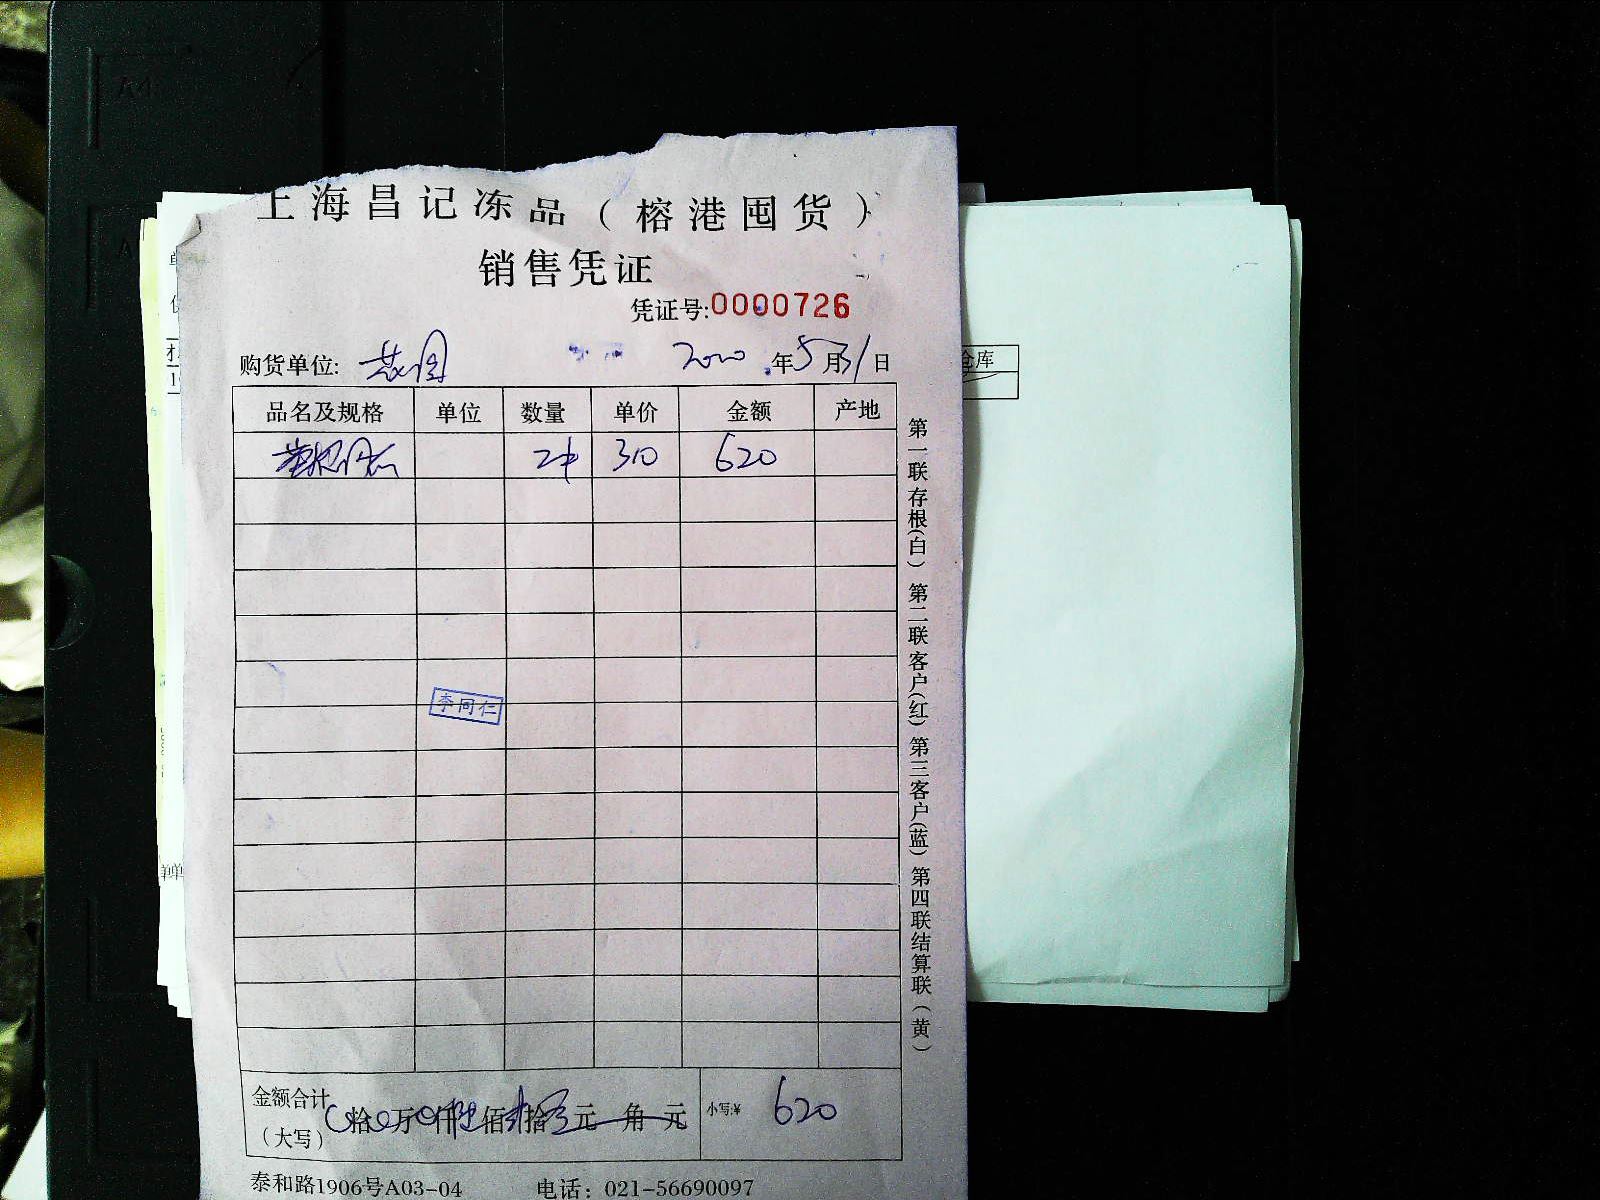 上海昌记冻品（榕港囤货）
销售凭证
凭证号:0000726
购货单位: 2020年5月31日
品名及规格 单位 数量 单价 金额 产地
2件 310 620
李同仁
金额合计（大写） 拾 万 仟 佰 拾 元 角 元 小写:¥ 620
泰和路1906号A03-04 电话：021-56690097
第一联存根(白) 第二联客户(红) 第三客户(蓝) 第四联结算联（黄）
仓库